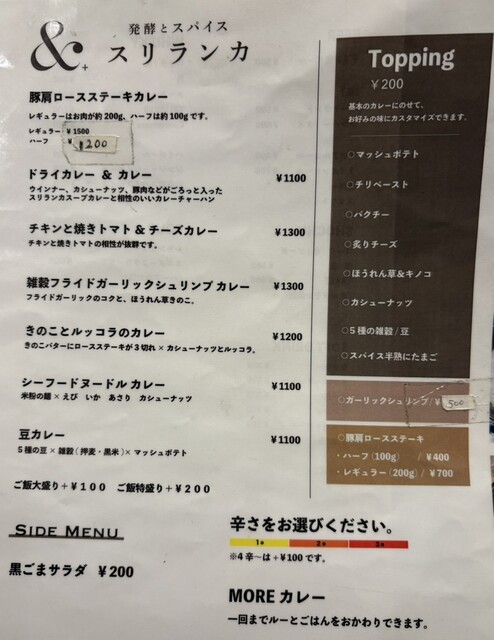 &+
発酵とスパイス
スリランカ
豚肩ロースステーキカレー
レギュラーはお肉が約200g、ハーフは約100gです。
レギュラー ¥1500
ハーフ ¥1200
ドライカレー & カレー ¥1100
ウインナー、カシューナッツ、豚肉などがごろっと入った
スリランカスープカレーと相性のいいカレーチャーハン
チキンと焼きトマト&チーズカレー ¥1300
チキンと焼きトマトの相性が抜群です。
雑穀フライドガーリックシュリンプ カレー ¥1300
フライドガーリックのコクと、ほうれん草きのこ。
きのことルッコラのカレー ¥1200
きのこバターにロースステーキが3切れ×カシューナッツとルッコラ。
シーフードヌードル カレー ¥1100
米粉の麺×えび いか あさり カシューナッツ
豆カレー ¥1100
5種の豆×雑穀(押麦・黒米)×マッシュポテト
ご飯大盛り+¥100 ご飯特盛り+¥200
SIDE MENU
黒ごまサラダ ¥200
Topping
¥200
基本のカレーにのせて、
お好みの味にカスタマイズできます。
○マッシュポテト
○チリペースト
○パクチー
○炙りチーズ
○ほうれん草&キノコ
○カシューナッツ
○5種の雑穀/豆
○スパイス半熟にたまご
○ガーリックシュリンプ/¥500
○豚肩ロースステーキ
・ハーフ(100g) /¥400
・レギュラー(200g)/¥700
辛さをお選びください。
1* 2* 3*
※4辛〜は+¥100です。
MORE カレー
一回までルーとごはんをおかわりできます。